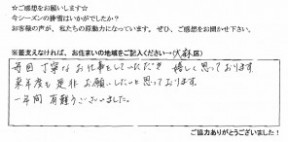 ☆ご感想をお願いします☆
今シーズンの静響はいかがでしたか？
お客様の声が、私たちの原動力になっています。ぜひ、ご感想をお聞かせ下さい。
※差支えなければ、お住まいの地域をご記入ください→(大森区)
毎回 丁寧な お仕事をして いただき 嬉しく思っております。
来年度も是非 お願いしたいと思っております
一年間 有難うございました。
ご協力ありがとうございました！